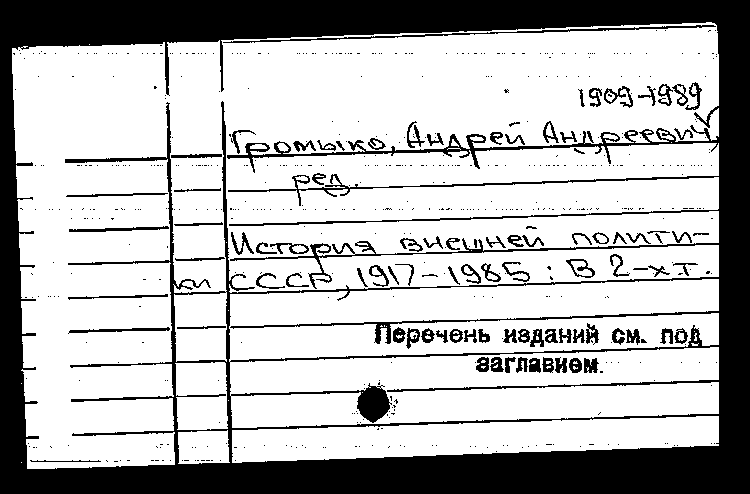 1909-1989
Громыко, Андрей Андреевич,
ред.
История внешней полити-
ки СССР, 1917-1985 : В 2-х т.
Перечень изданий см. под
заглавием.